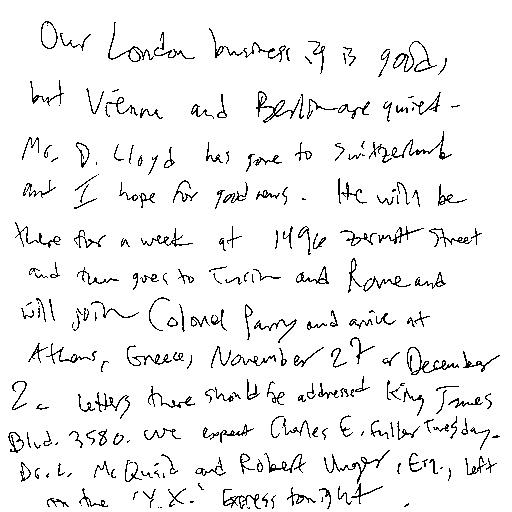 Our London business is good,
but Vienna and Berlin are quiet.
Mr. D. Lloyd has gone to Switzerland
and I hope for good news. He will be
there for a week at 1496 Zermott Street
and then goes to Turin and Rome and
will join Colonel Parry and arrive at
Athens, Greece, November 27 or December
2. Letters there should be addressed King James
Blvd. 3580. We expect Charles E. Fuller Tuesday.
Dr. L. McQuaid and Robert Unger, Esq., left
on the "Y.X." Express tonight.